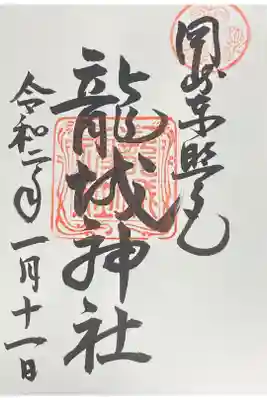 岡崎東照宮
龍城神社
令和二年一月十一日